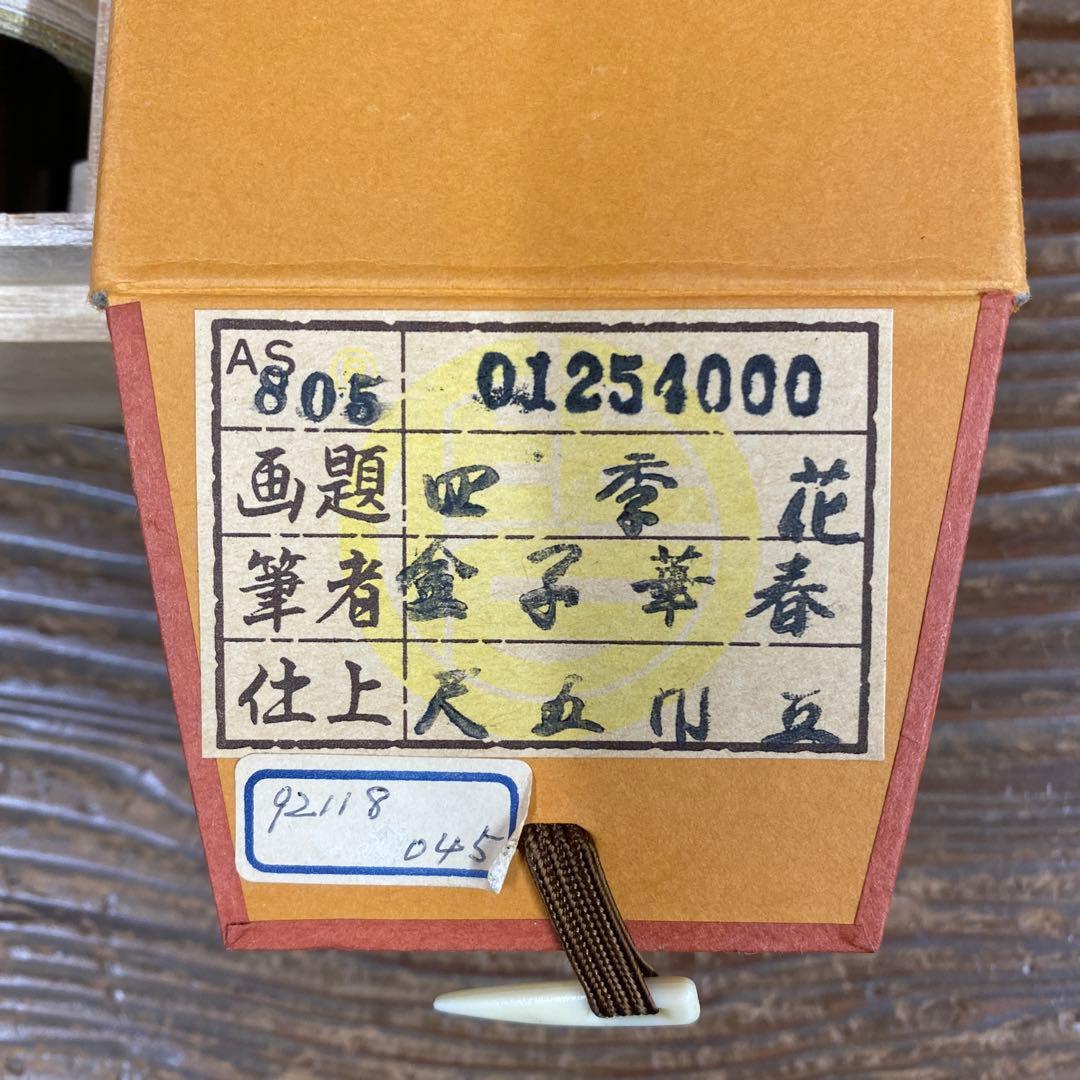 AS
805 01254000
画題 四季花
筆者 金子華春
仕上 尺五巾立
92118
045